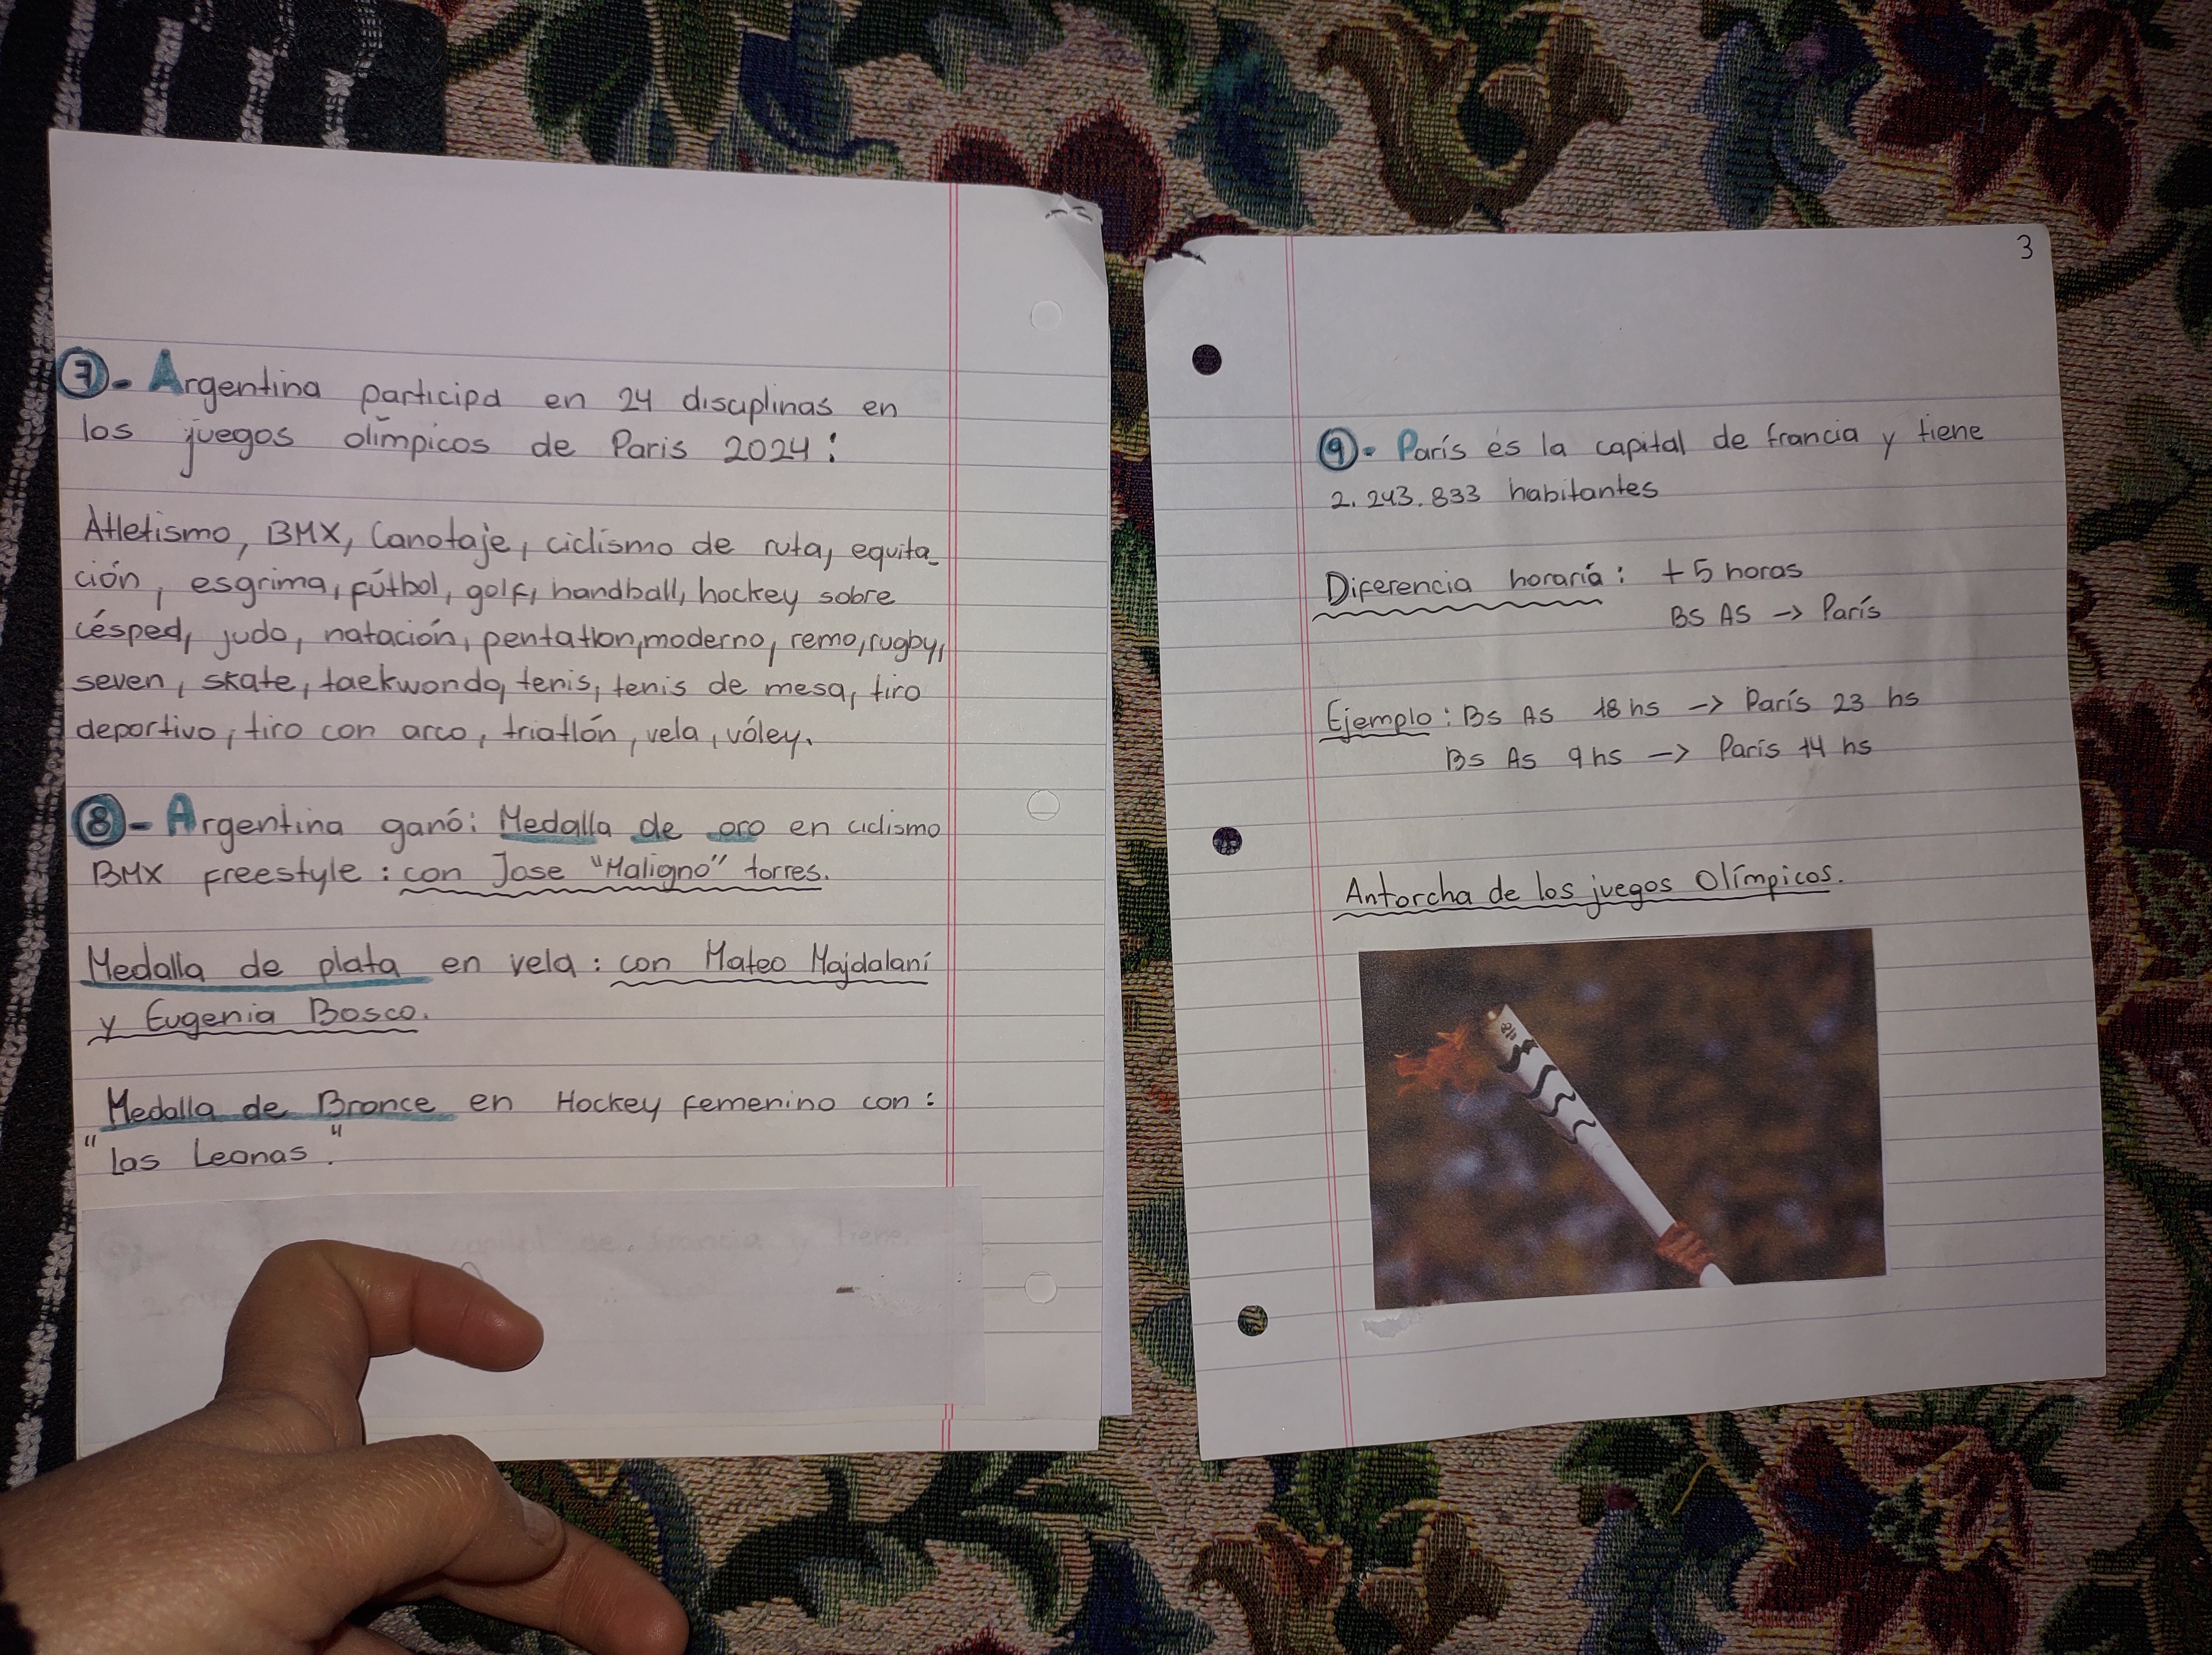 7- Argentina participa en 24 disciplinas en
los juegos olímpicos de Paris 2024:
Atletismo, BMX, Canotaje, ciclismo de ruta, equita-
ción, esgrima, fútbol, golf, handball, hockey sobre
césped, judo, natación, pentatlon, moderno, remo, rugby,
seven, skate, taekwondo, tenis, tenis de mesa, tiro
deportivo, tiro con arco, triatlón, vela, vóley.
8- Argentina ganó: Medalla de oro en ciclismo
BMX freestyle: con Jose "Maligno" torres.
Medalla de plata en vela: con Mateo Majdalaní
y Eugenia Bosco.
Medalla de Bronce en Hockey femenino con:
"las Leonas".
3
9- París es la capital de francia y tiene
2.243.833 habitantes
Diferencia horaría: +5 horas
BS AS → París
Ejemplo: BS AS 18 hs → París 23 hs
BS AS 9 hs → París 14 hs
Antorcha de los juegos Olímpicos.
capital de francia y tiene